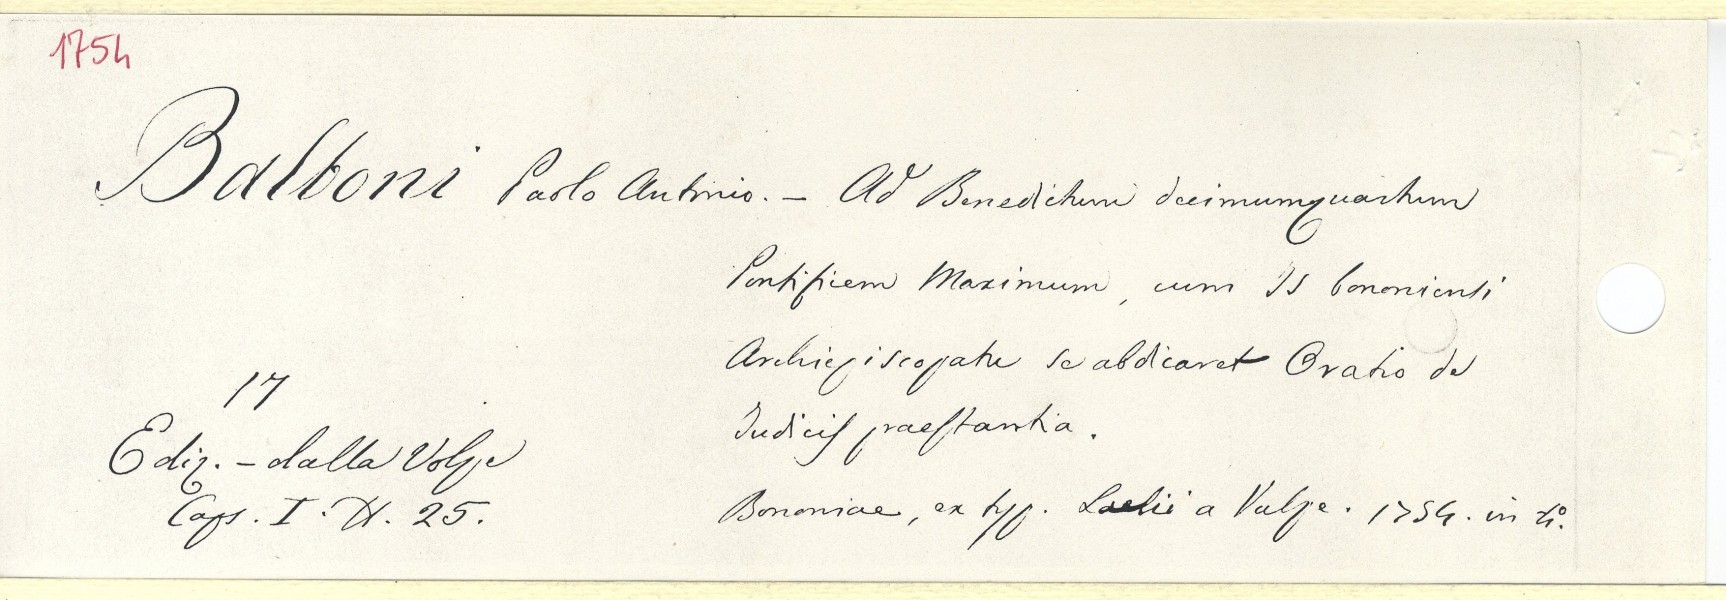 1754
Balboni Paolo Antonio. - Ad Benedictum decimumquartum
Pontificem Maximum, cum Is bononiensi
Archiepiscopatu se abdicaret Oratio de
Judicis praestantia.
17
Ediz. - dalla Volpe
Caps. I. N. 25.
Bononiae, ex typ. Laelii a Vulpe. 1754. in 4.º